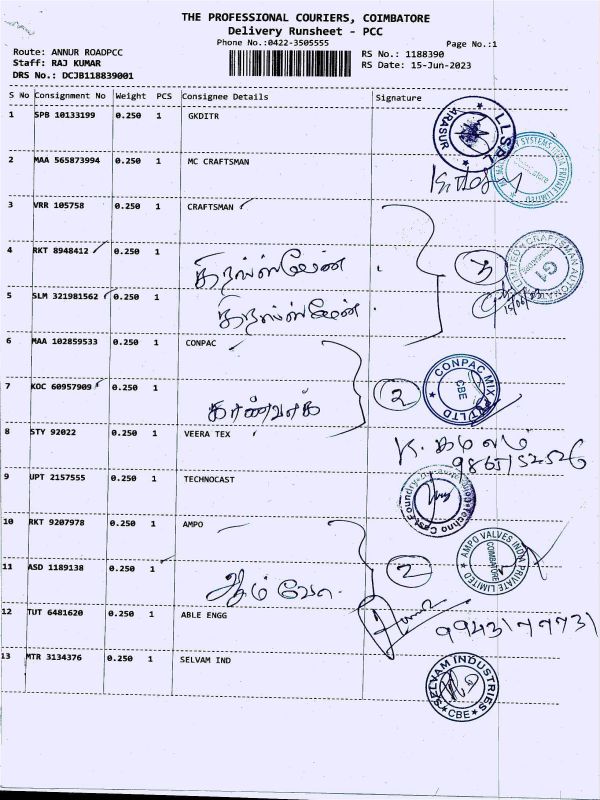 THE PROFESSIONAL COURIERS, COIMBATORE
Delivery Runsheet - PCC
Phone No.:0422-3505555
Page No.:1
Route: ANNUR ROADPCC
RS No.: 1188390
Staff: RAJ KUMAR
RS Date: 15-Jun-2023
DRS No.: DCJB118839001
S No Consignment No Weight PCS Consignee Details Signature
1 SPB 10133199 0.250 1 GKDITR
2 MAA 565873994 0.250 1 MC CRAFTSMAN
3 VRR 105758 0.250 1 CRAFTSMAN
4 RKT 8948412 0.250 1
5 SLM 321981562 0.250 1
6 MAA 102859533 0.250 1 CONPAC
CONPAC MIX PVT LTD CBE
7 KOC 60957909 0.250 1 2
8 STY 92022 0.250 1 VEERA TEX
9 UPT 2157555 0.250 1 TECHNOCAST
10 RKT 9207978 0.250 1 AMPO
AMPO VALVES INDIA PRIVATE LIMITED COIMBATORE
11 ASD 1189138 0.250 1 2
12 TUT 6481620 0.250 1 ABLE ENGG
13 MTR 3134376 0.250 1 SELVAM IND
SELVAM INDUSTRIES CBE